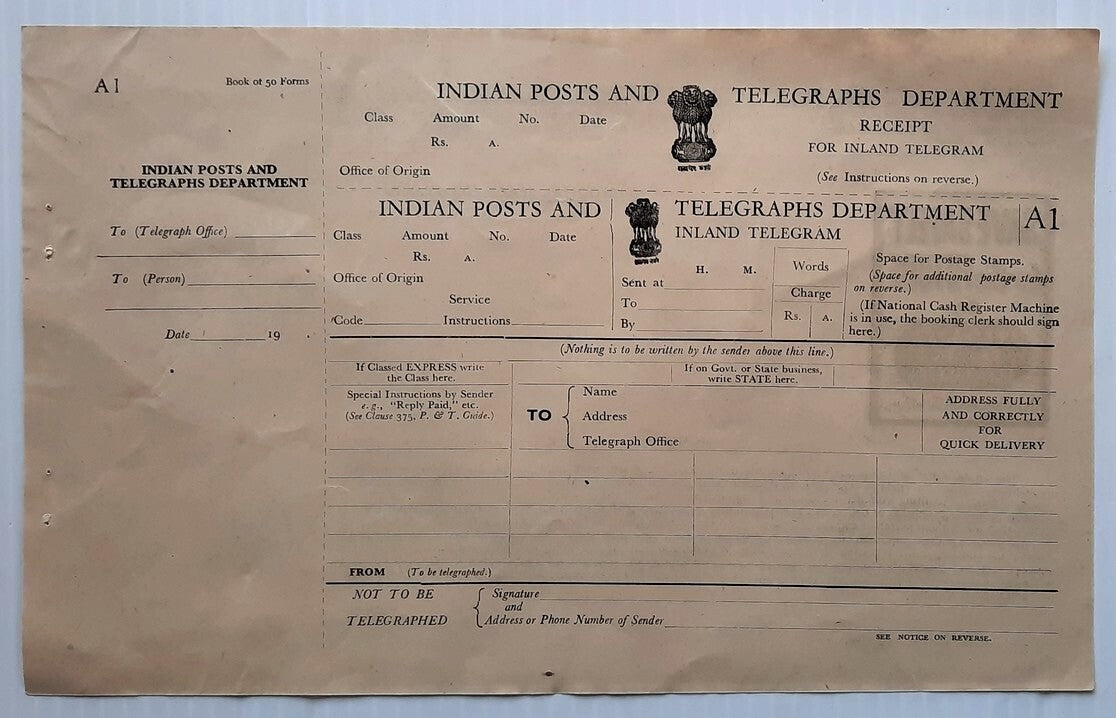 A1
Book of 50 Forms
INDIAN POSTS AND
TELEGRAPHS DEPARTMENT
To (Telegraph Office)
To (Person)
Date 19
INDIAN POSTS AND TELEGRAPHS DEPARTMENT
Class Amount No. Date
Rs. A.
Office of Origin
RECEIPT
FOR INLAND TELEGRAM
(See Instructions on reverse.)
INDIAN POSTS AND TELEGRAPHS DEPARTMENT A1
INLAND TELEGRAM
Class Amount No. Date
Rs. A.
Office of Origin
Service
Code Instructions
H. M.
Sent at
To
By
Words
Charge
Rs. A.
Space for Postage Stamps.
(Space for additional postage stamps
on reverse.)
(If National Cash Register Machine
is in use, the booking clerk should sign
here.)
(Nothing is to be written by the sender above this line.)
If Classed EXPRESS write
the Class here.
If on Govt. or State business,
write STATE here.
Special Instructions by Sender
e.g., "Reply Paid," etc.
(See Clause 375, P. & T. Guide.)
TO
Name
Address
Telegraph Office
ADDRESS FULLY
AND CORRECTLY
FOR
QUICK DELIVERY
FROM (To be telegraphed.)
NOT TO BE
TELEGRAPHED
Signature
and
Address or Phone Number of Sender
SEE NOTICE ON REVERSE.